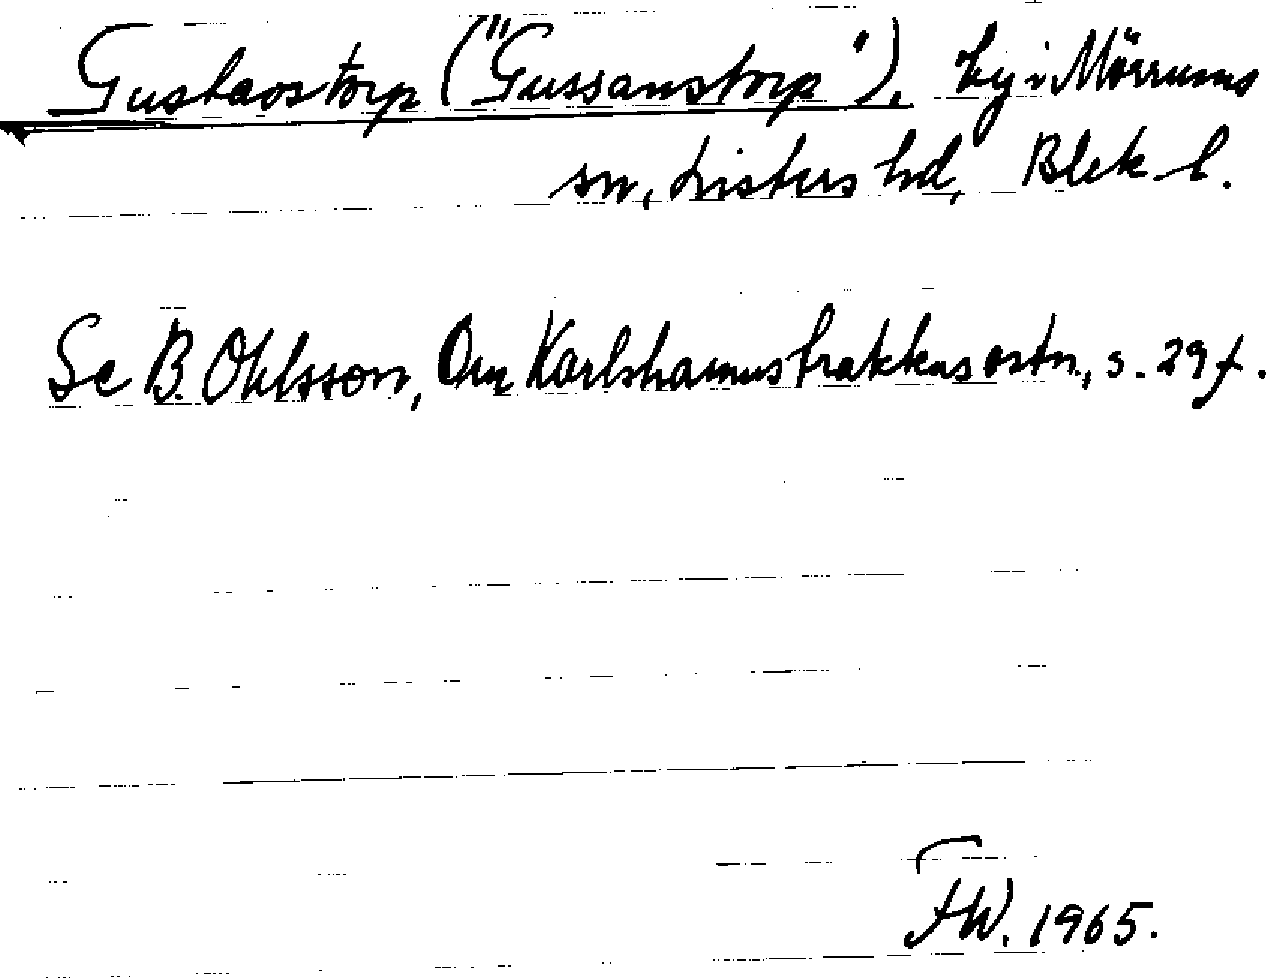 Gustavstorp ("Gussanstorp"), by i Mörrums
sn, Listers hd, Blek. l.
Se B. Ohlsson, Om Karlshamnstraktens ortn., s. 29 f.
FW. 1965.